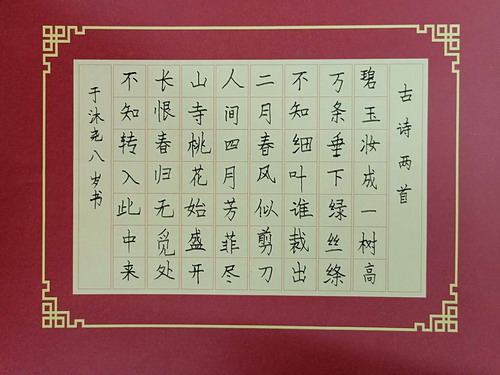 古诗两首
碧玉妆成一树高
万条垂下绿丝绦
不知细叶谁裁出
二月春风似剪刀
人间四月芳菲尽
山寺桃花始盛开
长恨春归无觅处
不知转入此中来
于沐尧八岁书